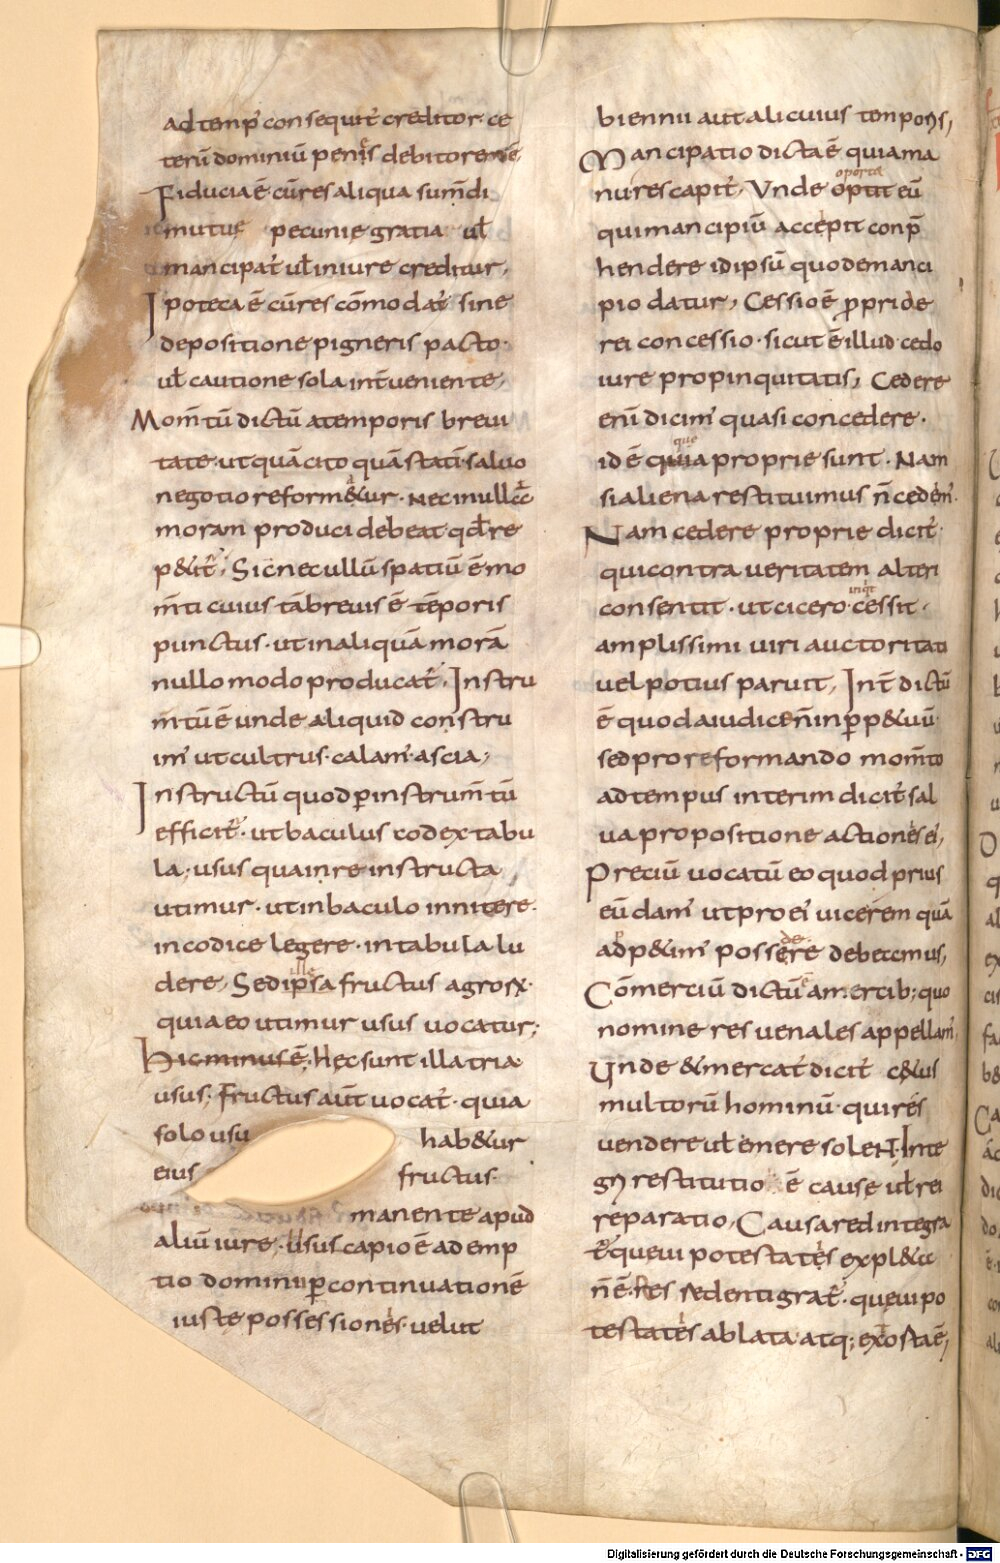 ad temp̄ consequit̄ creditor ce
terū dominiū penis debitorem ē
Fiducia ē cū res aliqua sum̄di
mutuę pecunię gratia uł
mancipat̄ uł in iure creditur,
Ipoteca ē cū res cōmodat̄ sine
depositione pigneris pacto·
uł cautione sola int̄ueniente,
Mom̄tū dictū a temporis breui
tate· ut quā cito quā stati saluo
negotio reform&ur· Nec in ullā
moram produci debeat qđ re
p&it̄, Sic nec ullū spatiū ē mo
m̄ti cuius tā breuis ē tēporis
punctus· ut in aliquā morā
nullo modo producat̄· Instru
m̄tū ē unde aliquid constru
im' ut cultrus· calam' ascia,
Instructū quod p̄ instrum̄tū
efficit̄· ut baculus codex tabu
la· usus qua in re instructa
utimur· ut in baculo innitere·
in codice legere· in tabula lu
dere, Sed ipsa fructus agrorx·
ille
quia eo utimur usus uocatur;
Hic minus ē· Hęc sunt illa tria
usus; Fructus aūt uocat̄· quia
solo usu hab&ur
eius fructus·
manente apud
aliū iure· usus capio ē ademp
tio dominii p̄ continuationē
iuste possessionis· uelut
biennii aut alicuius temporis,
Mancipatio dicta ē quia ma
oportet
nu res capit̄, Vnde optit eū
qui mancipiū accepit conp̄
hendere id ipsū quod emanci
pio datur, Cessio ē ꝓprię de
rei concessio· sicut ē illud cedo
iure propinquitatis, Cedere
enī dicim' quasi concedere·
que
id ē quia proprie sunt· Nam
si aliena restituimus n̄ cedem'
Nam cedere proprie dicit̄
qui contra ueritatem alteri
inqt
consentit· ut cicero· cessit·
amplissimi uiri auctoritati
uel potius paruit, Int̄dictū
ē quod a iudice n̄ in ꝑp&uū
sed pro reformando mom̄to
ad tempus interim dicit̄ sal
ua propositione actionis ei',
Preciū uocatū eo quod prius
eū dam' ut pro ei' uicerem quā
de
adp&im' possere debeemus,
Cōmerciū dictū a mercib; quo
nomine res uenales appellam'
Vnde & mercat̄ dicit̄ c&us
multorū hominū· qui res
uendere uł emere soleNt· Inte
gri restitutio ē cause uł rei
reparatio, Causa redintegra
t̄ que ui potestatis expl&a
n̄ ē· Res redentigrat̄· que ui po
testatis ablata atq; extosta ē,
Digitalisierung gefördert durch die Deutsche Forschungsgemeinschaft - DFG